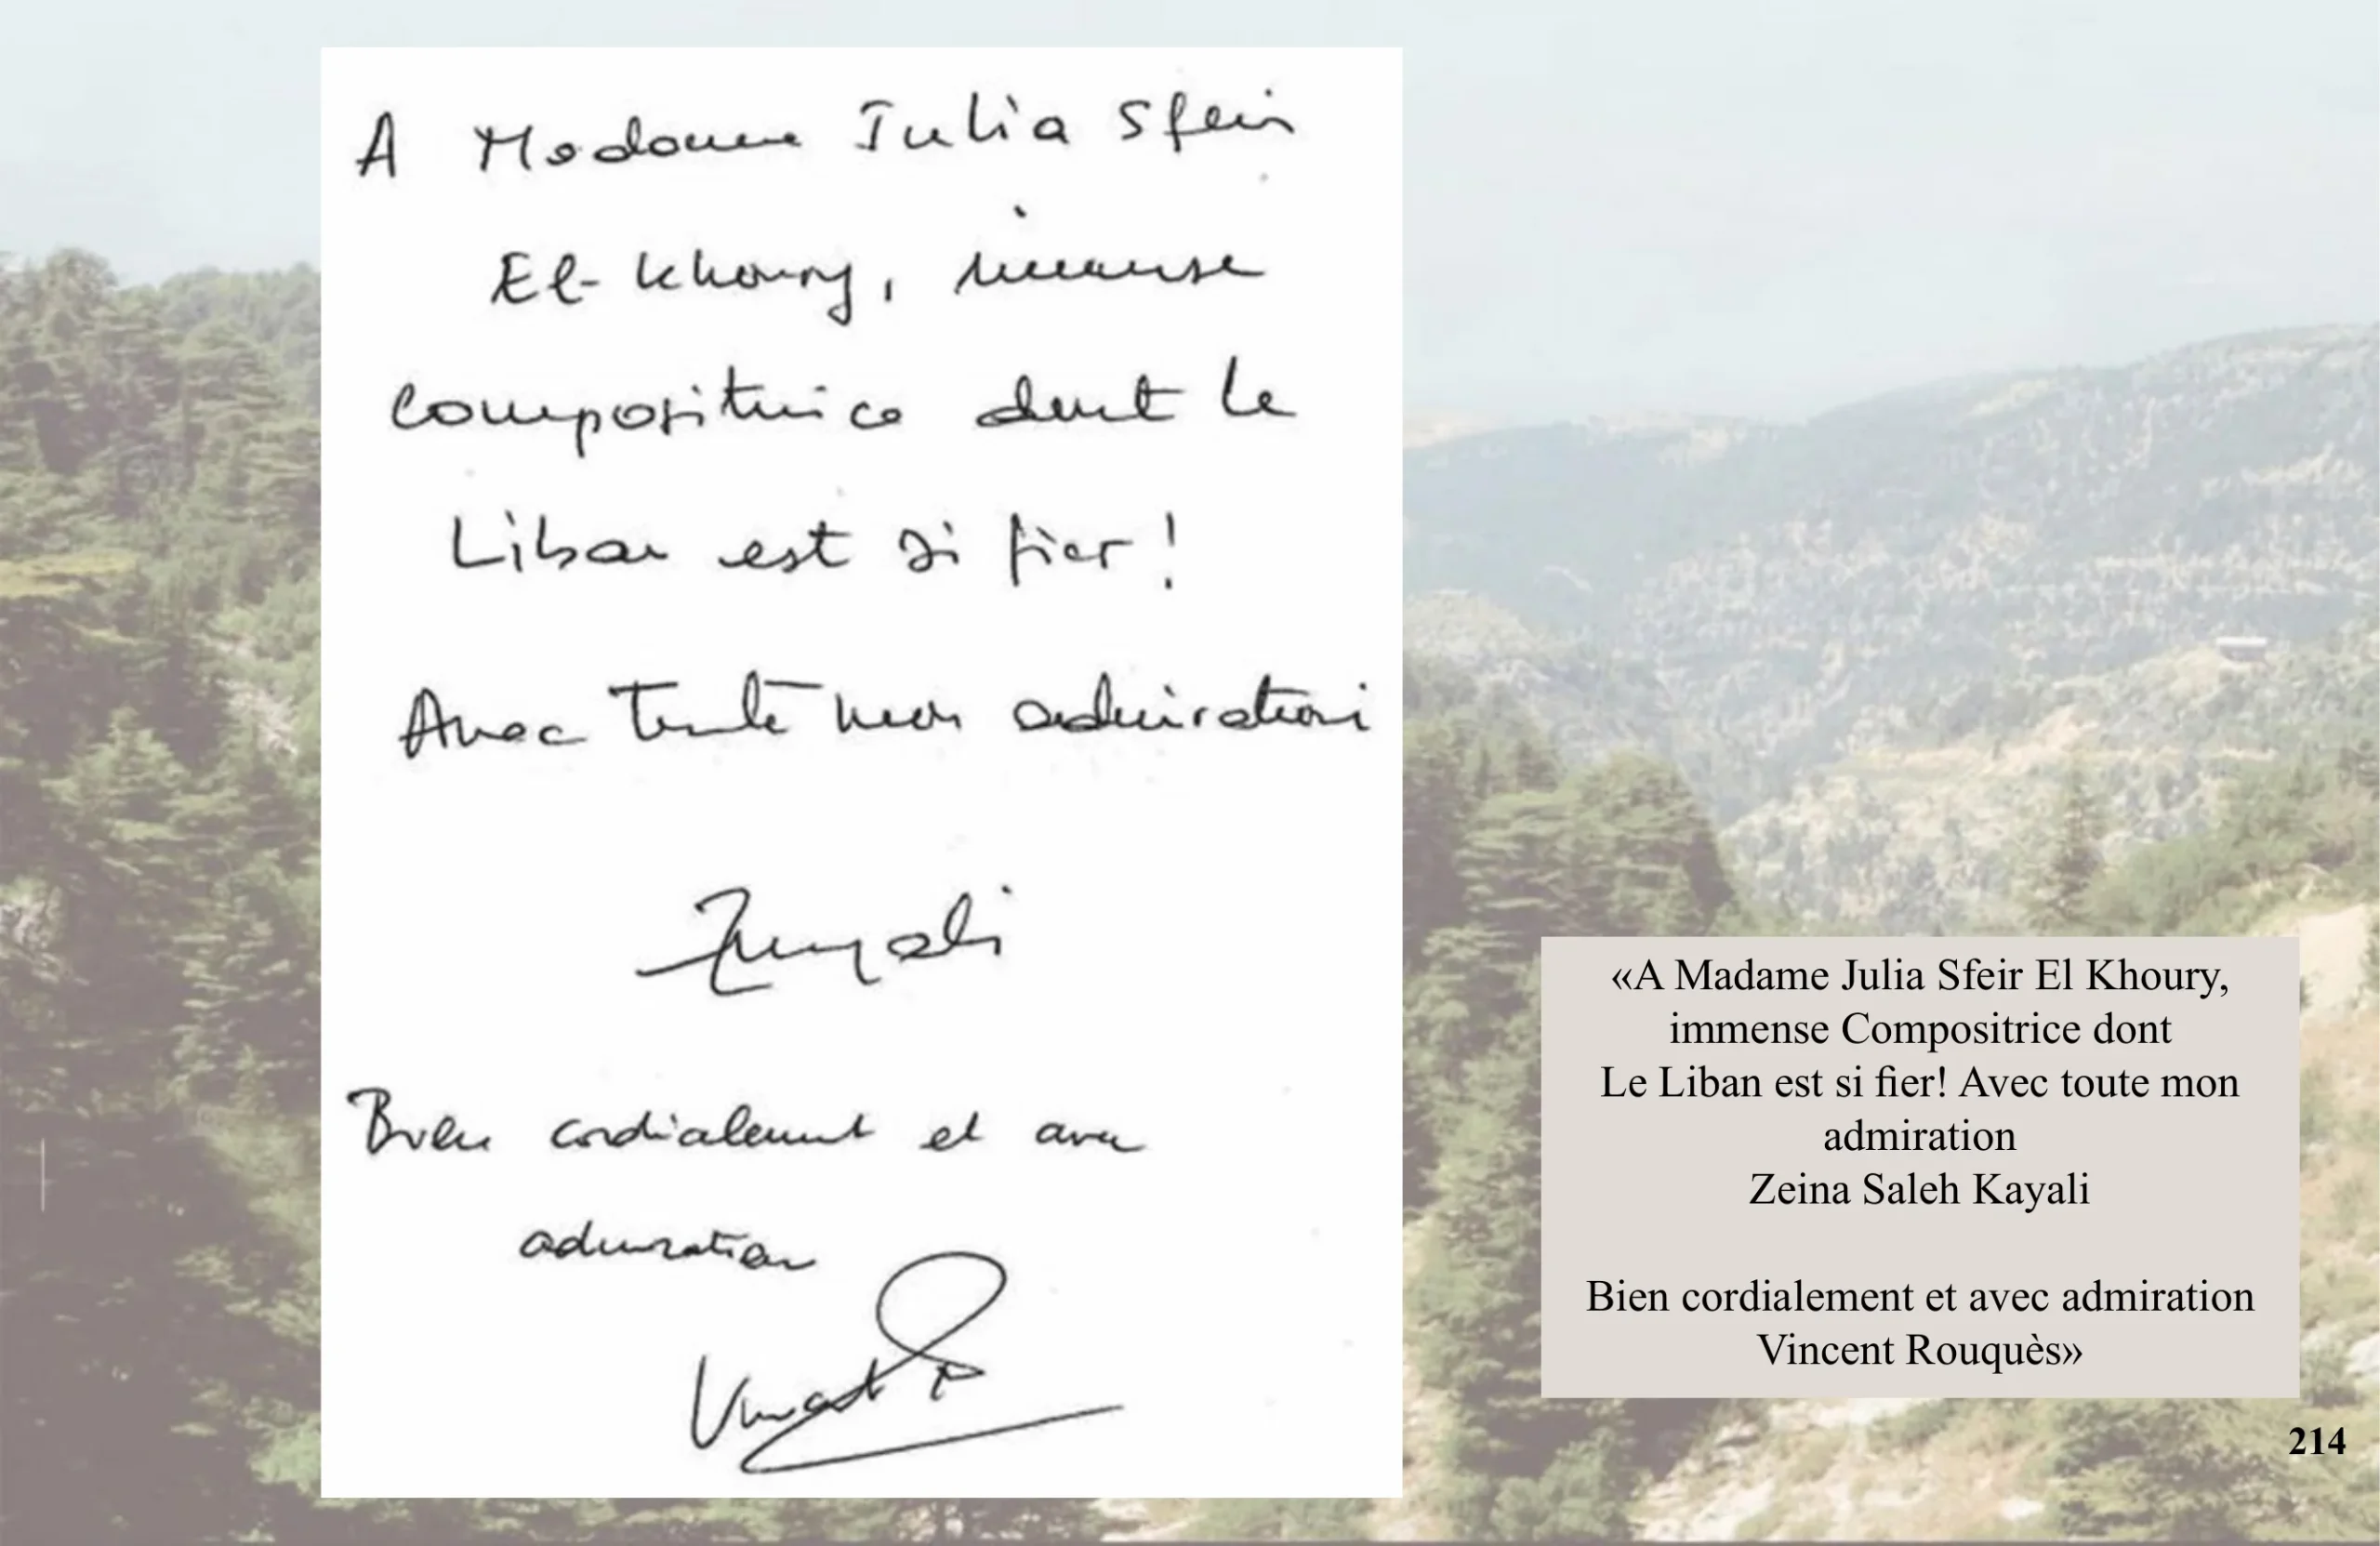 A Madame Julia Sfeir
El-Khoury, immense
compositrice dont le
Liban est si fier!
Avec toute mon admiration
Bien cordialement et avec
admiration
Vincent R
«A Madame Julia Sfeir El Khoury,
immense Compositrice dont
Le Liban est si fier! Avec toute mon
admiration
Zeina Saleh Kayali
Bien cordialement et avec admiration
Vincent Rouquès»
214